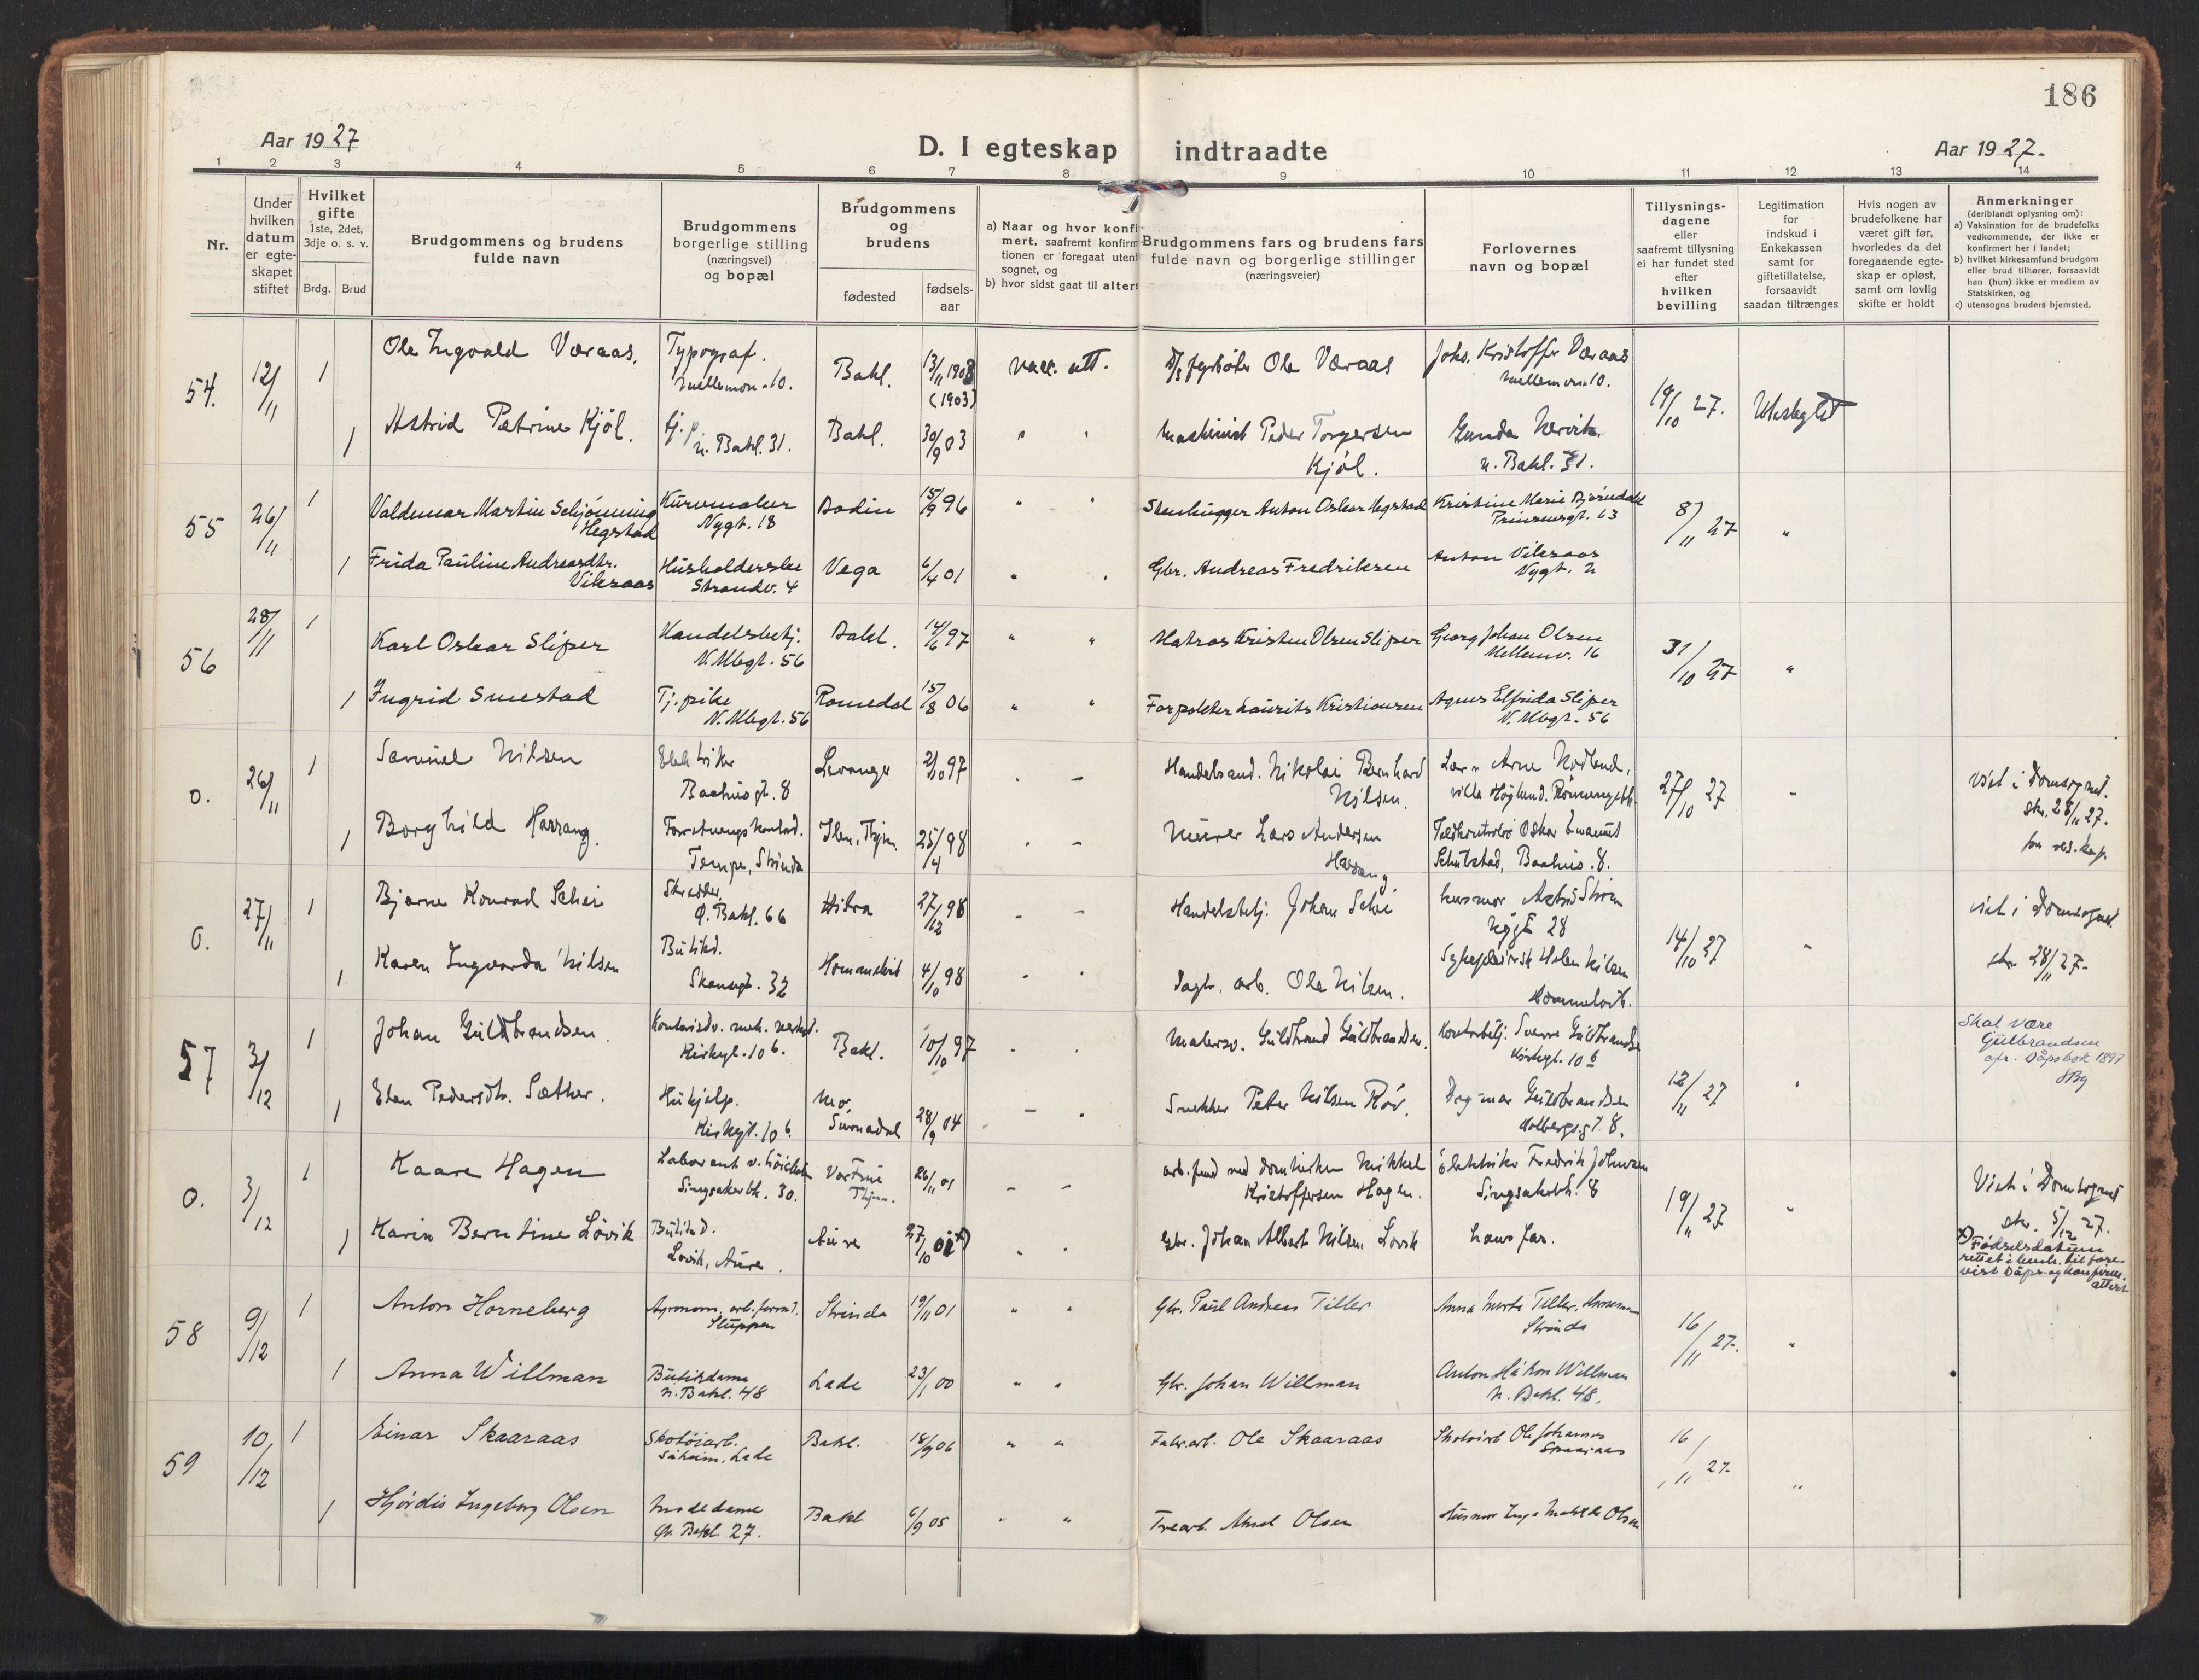 186
Aar 1927
D. I egteskap indtraadte
Aar 1927.
1 2 3 4 5 6 7 8 9 10 11 12 13 14
Nr.
Under hvilken datum er egteskapet stiftet
Hvilket gifte 1ste, 2det, 3dje o. s. v.
Brdg. Brud
Brudgommens og brudens fulde navn
Brudgommens borgerlige stilling (næringsvei) og bopæl
Brudgommens og brudens
fødested
fødselsaar
a) Naar og hvor konfimert, saafremt konfirmtionen er foregaat utenf sognet, og
b) hvor sidst gaat til alters
Brudgommens fars og brudens fars fulde navn og borgerlige stillinger (næringsveier)
Forlovernes navn og bopæl
Tillysningsdagene eller saafremt tillysning ei har fundet sted efter hvilken bevilling
Legitimation for indskud i Enkekassen samt for giftetillatelse, forsaavidt saadan tiltrænges
Hvis nogen av brudefolkene har været gift før, hvorledes da det foregaaende egteskap er opløst, samt om lovlig skifte er holdt
Anmerkninger (deriblandt oplysning om):
a) Vaksination for de brudefolks vedkommende, der ikke er konfirmert her i landet;
b) hvilket kirkesamfund brudgom eller brud tilhører, forsaavidt han (hun) ikke er medlem av Statskirken, og
c) utensogns bruders hjemsted.
54. 12/11 1 Ole Ingvald Væraas. Typograf. Mellemv. 10. Bakl. 13/11 1903 (1903) vacc. att. Ole Væraas Johs. Kristoffer Væraas Mellemv. 10. 19/10 27.
1 Astrid Petrine Kjöl. Tj.p. n. Bakl. 31. Bakl. 30/9 03 " " Maskinist Peder Torgersen Kjöl. Gunda n. Bakl. 31.
55 26/11 1 Valdemar Martin Schjönning Hegstad Kurvmaker Nygt. 18 Bodin 15/9 96 " " Stenhugger Anton Oskar Hegstad Kristine Marie Bjørndal Prinsensgt. 63 8/11 27 "
1 Frida Pauline Andreasdtr. Viksaas Husholderske Strandv. 4 Vega 6/4 01 " " Gbr. Andreas Fredriksen Anton Viksaas Nygt. 2
56 28/11 1 Karl Oskar Sliper Handelsbetj. N. Mbgt. 56 Bakl. 14/6 97 " " Matros Kristen Olsen Sliper Georg Johan Olsen Mellemv. 16 31/10 27 "
1 Ingrid Smestad Tj.pike N. Mbgt. 56 Romedal 15/8 06 " " Forpakter Laurits Kristiansen Agnes Elfrida Sliper N. Mbgt. 56
0. 26/11 1 Samuel Nilsen Elektriker Baahusgt. 8 Levanger 2/10 97 Handelsmd. Nikolai Bernhard Nilsen. Arne Nodland, villa Höglund. 27/10 27 Viet i Domsognet. skr. 28/11 27. for res. kap.
1 Borghild Harrang. Tempe, Strinda Ilen, Thjm. 25/4 98 Murer Lars Andersen Harrang Oskar Emanuel Schulstad, Baahus. 8.
0. 27/11 1 Bjarne Konrad Selvi Skredder, Ø. Bakl. 66 Hitra 27/12 98 Handelsbetj. Johan Selvi husmor Astrid Strøm 28 14/10 27 " viet i Domsognet. skr. 28/11 27.
1 Karen Ingvarda Nilsen Butikd. Skansegt. 32 Hommelvik 4/10 98 Dagl. arb. Ole Nilsen. Helen Nilsen Hommelvik.
57 3/12 1 Johan Guldbrandsen. Kirkegt. 10 b. Bakl. 10/10 97 Malersv. Guldbrand Guldbrandsen. Kontorbetj. Sverre Guldbrandsen Kirkegt. 10 b 12/11 27 " Skal være Gulbrandsen cfr. Dåpsbok 1897 SBg
1 Elen Pedersdtr. Sæther. Hushjelp. Kirkegt. 10 b. Mo, Surnadal 28/9 04 Snekker Peter Nilsen Röv. Dagmar Guldbrandsen Holbergsgt. 8.
0. 3/12 1 Kaare Hagen Singsakerbk. 30. Vor Frue Thjm. 26/11 01 arb.fmd ved domkirken Mikkel Kristoffersen Hagen. Elektriker Fredrik Johnsen Singsakerbk. 8 19/11 27 " Viet i Domsognet skr. 5/12 27.
1 Karin Berntine Lövik Butikd. Lövik, Aure. Aure 27/10 01 x) Gbr. Johan Albert Nilsen Lövik hans far. x) Fødselsdatum rettet i henh. til forevist dåps- og konfirm. attest
58 9/12 1 Anton Horneberg Agronom, arb.formd. Sluppen Strinda 19/11 01 " " Gbr. Paul Andreas Tiller Anna Marta Tiller, Strinda 16/11 27. "
1 Anna Willman Butikdame N. Bakl. 48 Lade 23/1 00 " " Gbr. Johan Willman Anton Håkon Willman N. Bakl. 48.
59 10/12 1 Einar Skaaraas Skotöiarb. Lade Bakl. 18/9 06 " " Fabr.arb. Ole Skaaraas Skotöiarb Ole Johannes Skaaraas 16/11 27. "
1 Hjördis Ingeborg Olsen Modedame Ø. Bakl. 27. Bakl 6/9 05 " " Trearb. Olsen Husmor Inga Olsen